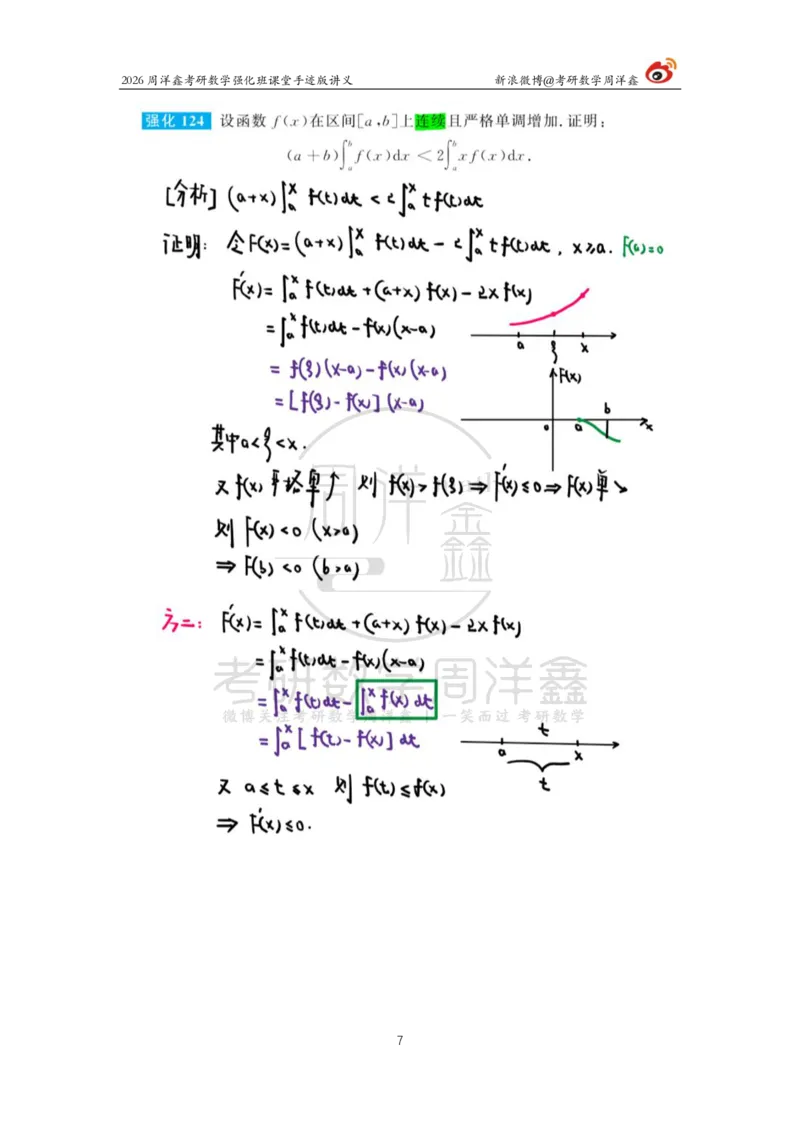 2026 周洋鑫考研数学强化班课堂手迹版讲义 新浪微博@考研数学周洋鑫
强化 124 设函数 f(x)在区间[a,b]上连续且严格单调增加.证明:
(a+b)∫ₐᵇ f(x)dx < 2∫ₐᵇ xf(x)dx.
[分析] (a+x)∫ₐˣ f(t)dt < 2∫ₐˣ tf(t)dt
证明: 令F(x)=(a+x)∫ₐˣ f(t)dt - 2∫ₐˣ tf(t)dt, x≥a. F(a)=0
F'(x)=∫ₐˣ f(t)dt+(a+x)f(x)-2xf(x)
=∫ₐˣ f(t)dt-f(x)(x-a)
a ξ x
= f(ξ)(x-a)-f(x)(x-a)
F(x)
=[f(ξ)-f(x)](x-a)
o a b x
其中a<ξ<x.
又f(x)严格单↑ 则 f(x)>f(ξ)⇒F'(x)≤0⇒F(x)单↘
则F(x)<0 (x>a)
⇒F(b)<0 (b>a)
方二: F'(x)=∫ₐˣ f(t)dt+(a+x)f(x)-2xf(x)
=∫ₐˣ f(t)dt-f(x)(x-a)
=∫ₐˣ f(t)dt-∫ₐˣ f(x)dt
=∫ₐˣ [f(t)-f(x)]dt
t
a x
t
又 a≤t≤x 则 f(t)≤f(x)
⇒ F'(x)≤0.
周洋鑫
考研数学周洋鑫
微博关注考研数学周洋鑫 | 一笑而过 考研数学
7